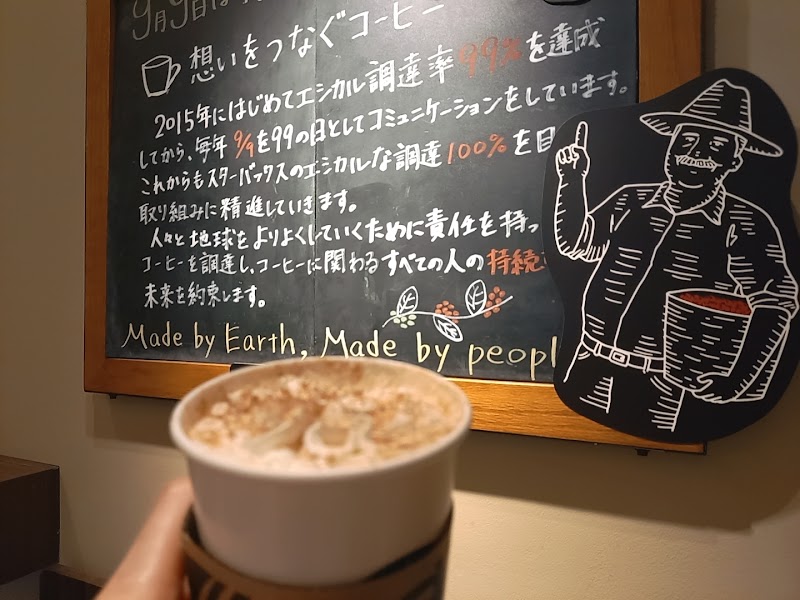 9月9日は
想いをつなぐコーヒー
2015年にはじめてエシカル調達率99%を達成
してから、毎年9/9を99の日としてコミュニケーションをしています。
これからもスターバックスのエシカルな調達100%を目
取り組みに精進していきます。
人々と地球をよりよくしていくために責任を持っ
コーヒーを調達し、コーヒーに関わるすべての人の持続
未来を約束します。
Made by Earth, Made by peopl